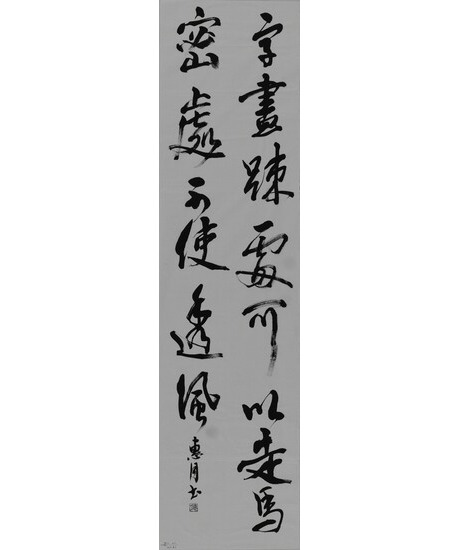 字畫踈處可以走馬
密處不使透風
惠月书